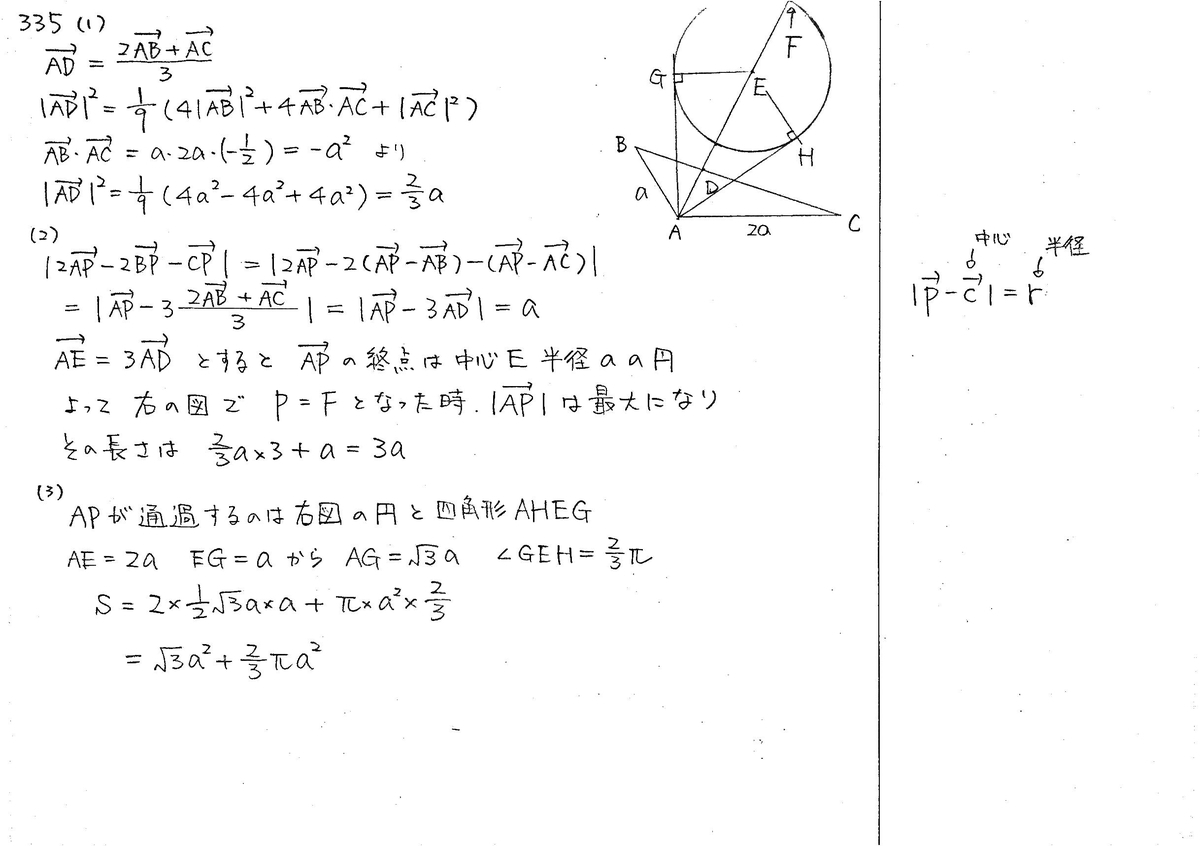 335 (1)
→AD = (2→AB + →AC)/3
|→AD|² = 1/9 (4|→AB|² + 4→AB・→AC + |→AC|²)
→AB・→AC = a・2a・(-1/2) = -a² より
|→AD|² = 1/9 (4a² - 4a² + 4a²) = 2/3 a
(2)
|2→AP - 2→BP - →CP| = |2→AP - 2(→AP - →AB) - (→AP - →AC)|
= |→AP - 3 (2→AB + →AC)/3| = |→AP - 3→AD| = a
→AE = 3→AD とすると →AP の終点は中心E 半径aの円
よって 右の図で P = F となった時. |→AP| は最大になり
その長さは 2/3 a×3 + a = 3a
(3)
APが通過するのは右図の円と四角形AHEG
AE = 2a EG = a から AG = √3a ∠GEH = 2/3 π
S = 2×1/2 √3a×a + π×a²×2/3
= √3a² + 2/3 πa²
F
G
E
B
H
a
D
A
2a
C
中心 半径
|→p - →c| = r